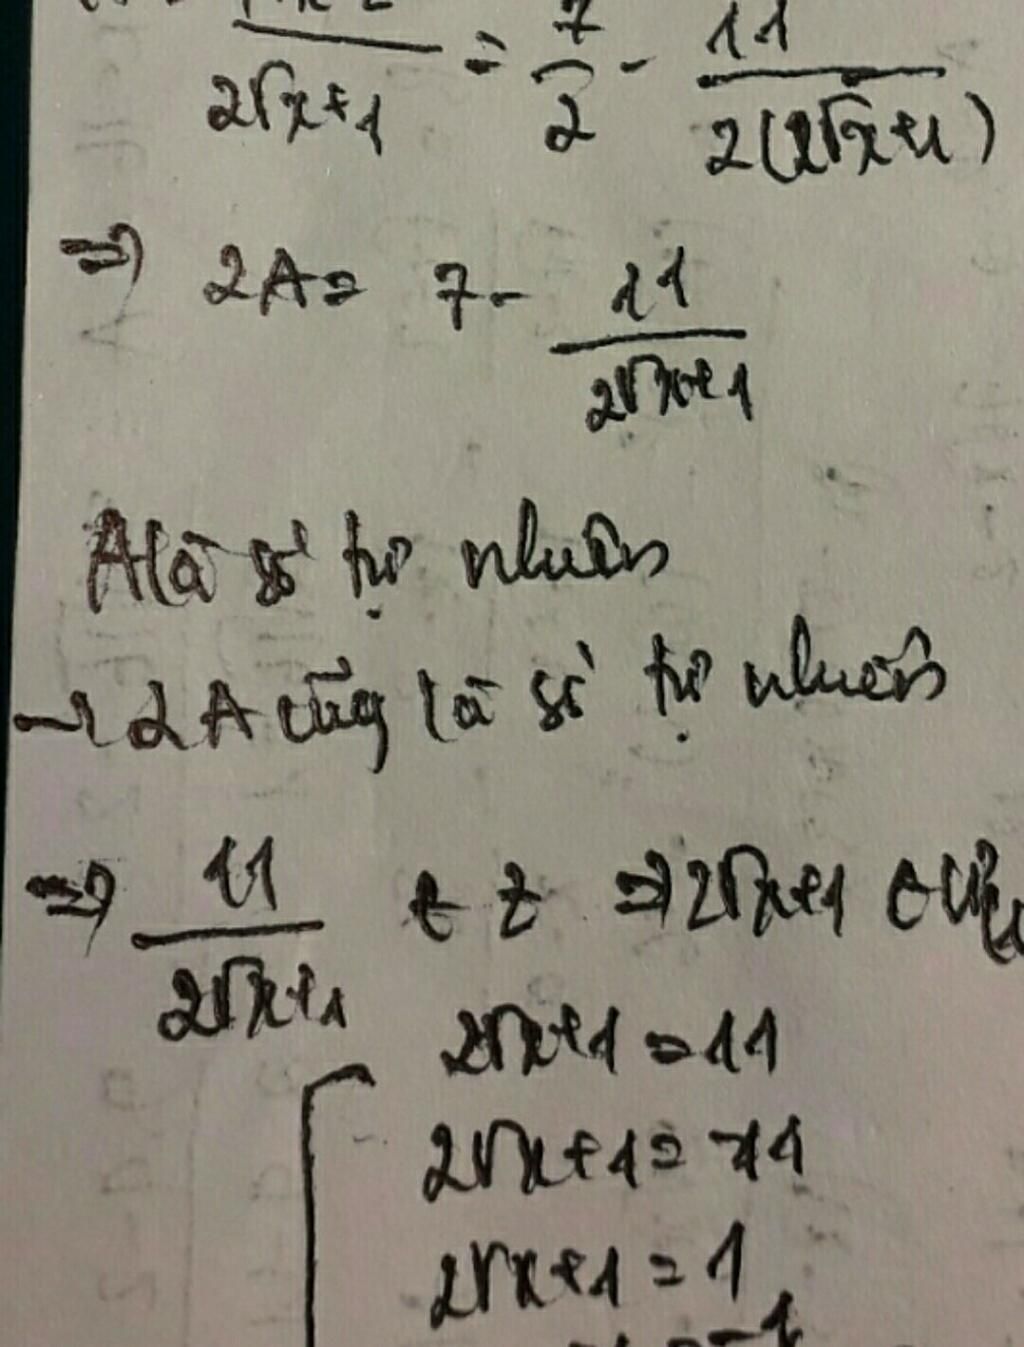 2√x+1 = 7/2 - 11/2(2√x+1)
⇒ 2A = 7 - 11/2√x+1
A là số tự nhiên
→ 2A cũng là số tự nhiên
⇒ 11/2√x+1 ∈ Z ⇒ 2√x+1 ∈ Ư
2√x+1 = 11
2√x+1 = -11
2√x+1 = 1
-1